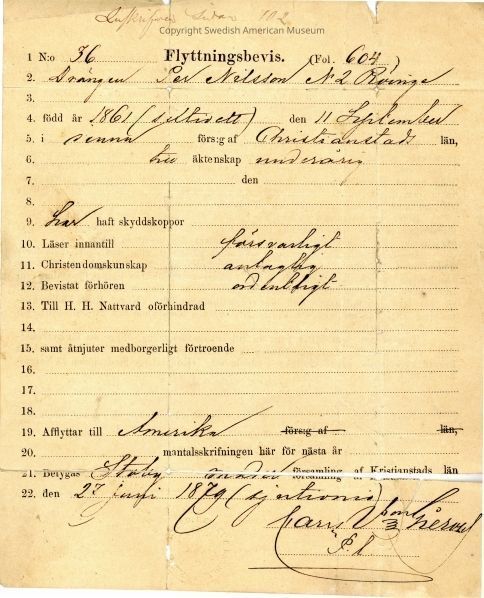 Inskrifven Sidan 102
Copyright Swedish American Museum
1 N:o 36 Flyttningsbevis. (Fol. 604)
2. Drängen Per Nilsson N 2 Röinge
3.
4. född år 1861 (settioett) den 11 September
5. i denna förs:g af Christianstads län,
6. äktenskap underårig
7. den
8.
9. har haft skyddskoppor
10. Läser innantill försvarligt
11. Christendomskunskap antaglig
12. Bevistat förhören ordentligt
13. Till H. H. Nattvard oförhindrad
14.
15. samt åtnjuter medborgerligt förtroende
16.
17.
18.
19. Afflyttar till Amerika förs:g af län,
20. mantalsskrifningen här för nästa år
21. Betygas Stoby församling af Kristianstads län
22. den 27 juni 1879 (sjuttionio)